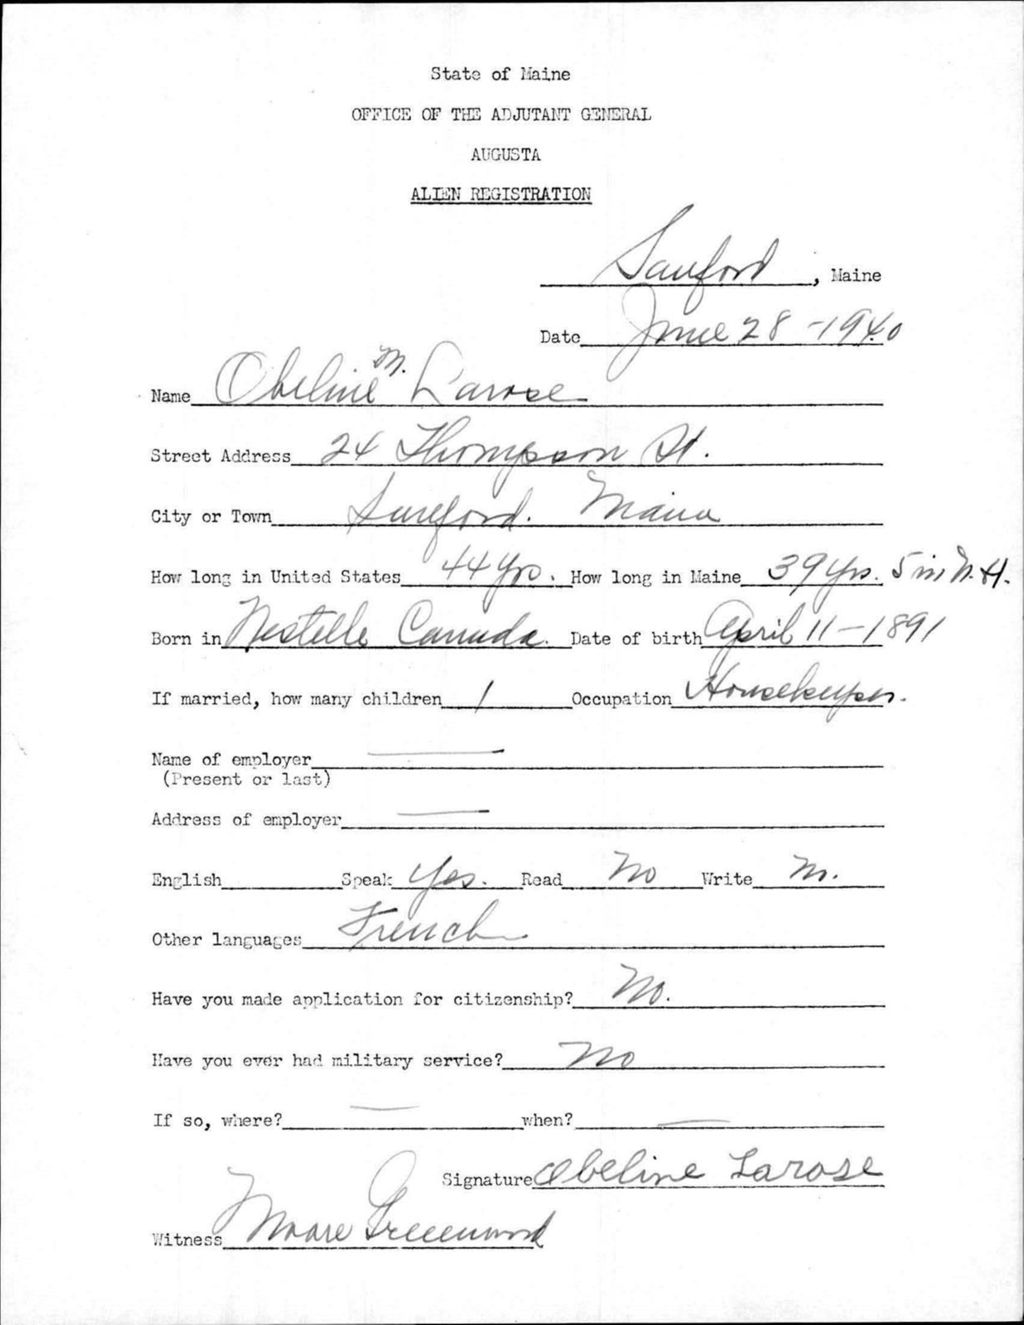 State of Maine
OFFICE OF THE ADJUTANT GENERAL
AUGUSTA
ALIEN REGISTRATION
Sanford, Maine
Date June 28-1940
Name Obeline M. Larose
Street Address 24 Thompson St.
City or Town Sanford. Maine
How long in United States 44 yrs. How long in Maine 39 yrs. 5 in N.H.
Born in Canada. Date of birth April 11-1891
If married, how many children 1 Occupation Housekeeper.
Name of employer
(Present or last)
Address of employer
English Speak Yes. Read No Write No.
Other languages French
Have you made application for citizenship? No.
Have you ever had military service? No
If so, where? when?
Signature Obeline Larose
Witness Greenwood